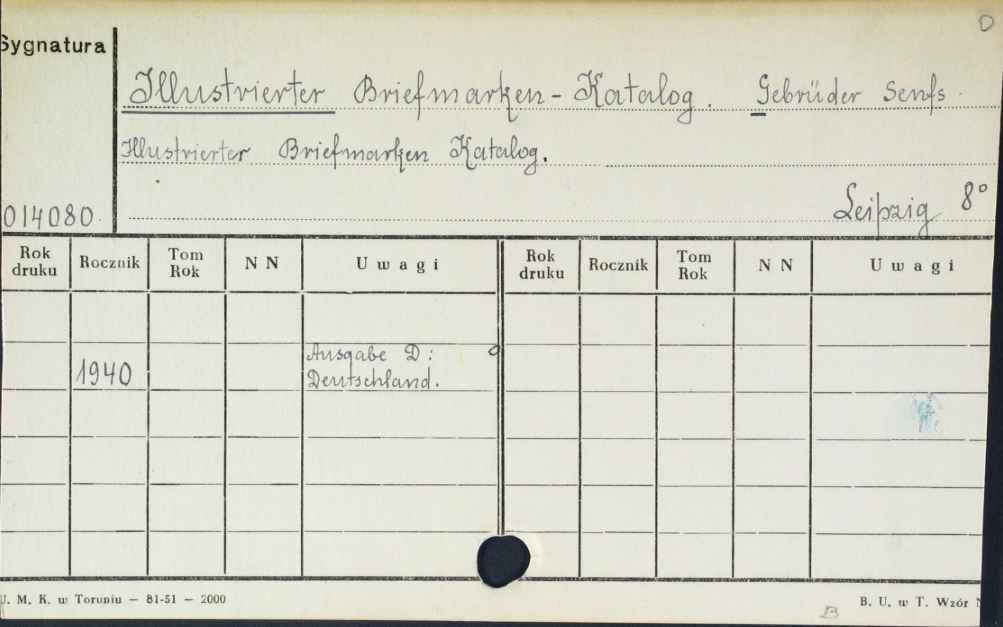 D
Sygnatura
Illustrierter Briefmarken-Katalog. Gebrüder Senfs
Illustrierter Briefmarken Katalog.
014080. Leipzig 8°
Rok druku Rocznik Tom Rok N N Uwagi Rok druku Rocznik Tom Rok N N Uwagi
1940 Ausgabe D:
Deutschland.
U. M. K. w Toruniu — 81-51 — 2000
B. U. w T. Wzór
B